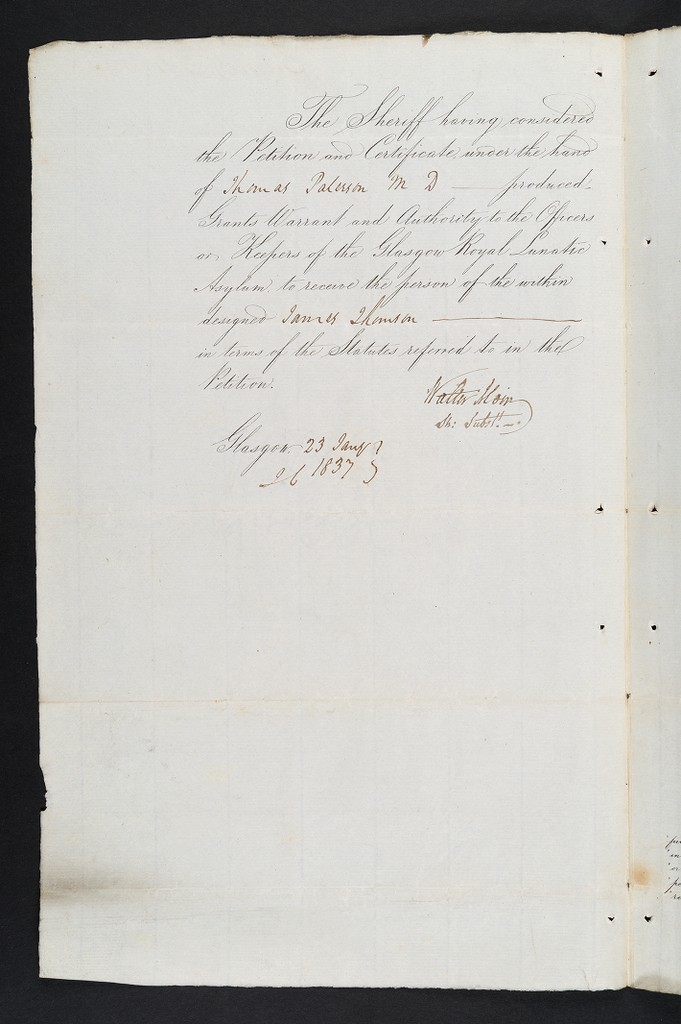 The Sheriff having considered
the Petition and Certificate under the hand
of Thomas Paterson M D — produced
Grants Warrant and Authority to the Officers
or Keepers of the Glasgow Royal Lunatic
Asylum to receive the person of the within
designed James Thomson —
in terms of the Statutes referred to in the
Petition.
Walter Moir
Sh: Subst.
Glasgow 23 Jany
1837